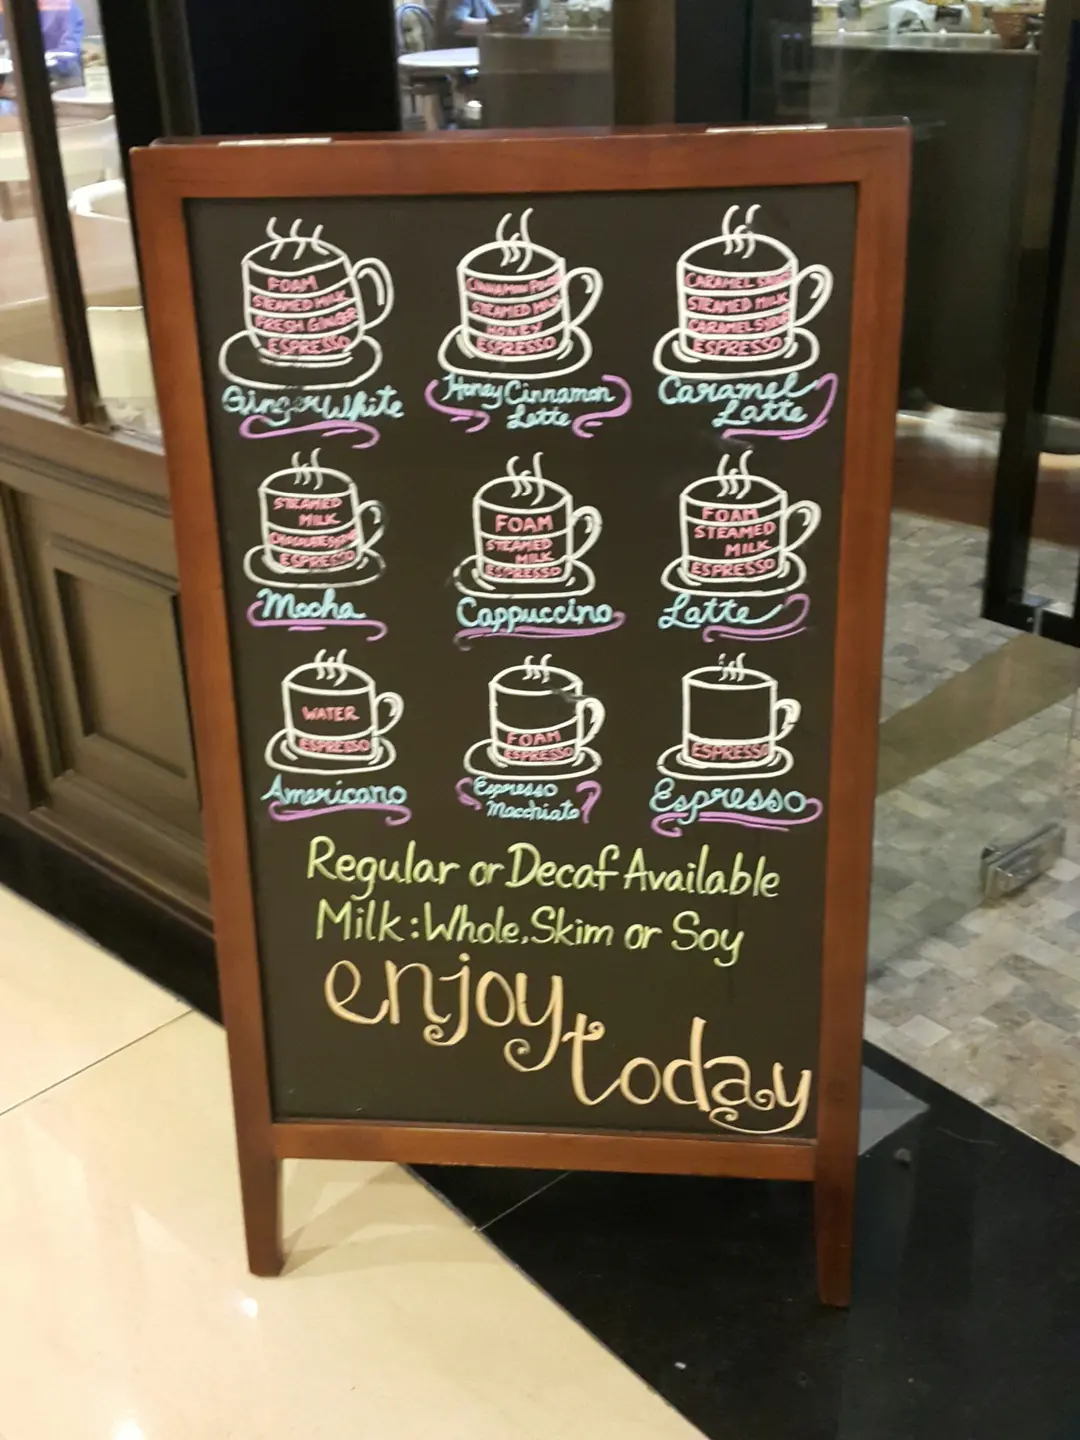 FOAM
STEAMED MILK
FRESH GINGER
ESPRESSO
Ginger White
CINNAMON
STEAMED MILK
HONEY
ESPRESSO
Honey Cinnamon
Latte
CARAMEL
STEAMED MILK
CARAMEL SYRUP
ESPRESSO
Caramel
Latte
STEAMED
MILK
ESPRESSO
Mocha
FOAM
STEAMED
MILK
ESPRESSO
Cappuccino
FOAM
STEAMED
MILK
ESPRESSO
Latte
WATER
ESPRESSO
Americano
FOAM
ESPRESSO
Espresso
Macchiato
ESPRESSO
Espresso
Regular or Decaf Available
Milk: Whole, Skim or Soy
enjoy
today